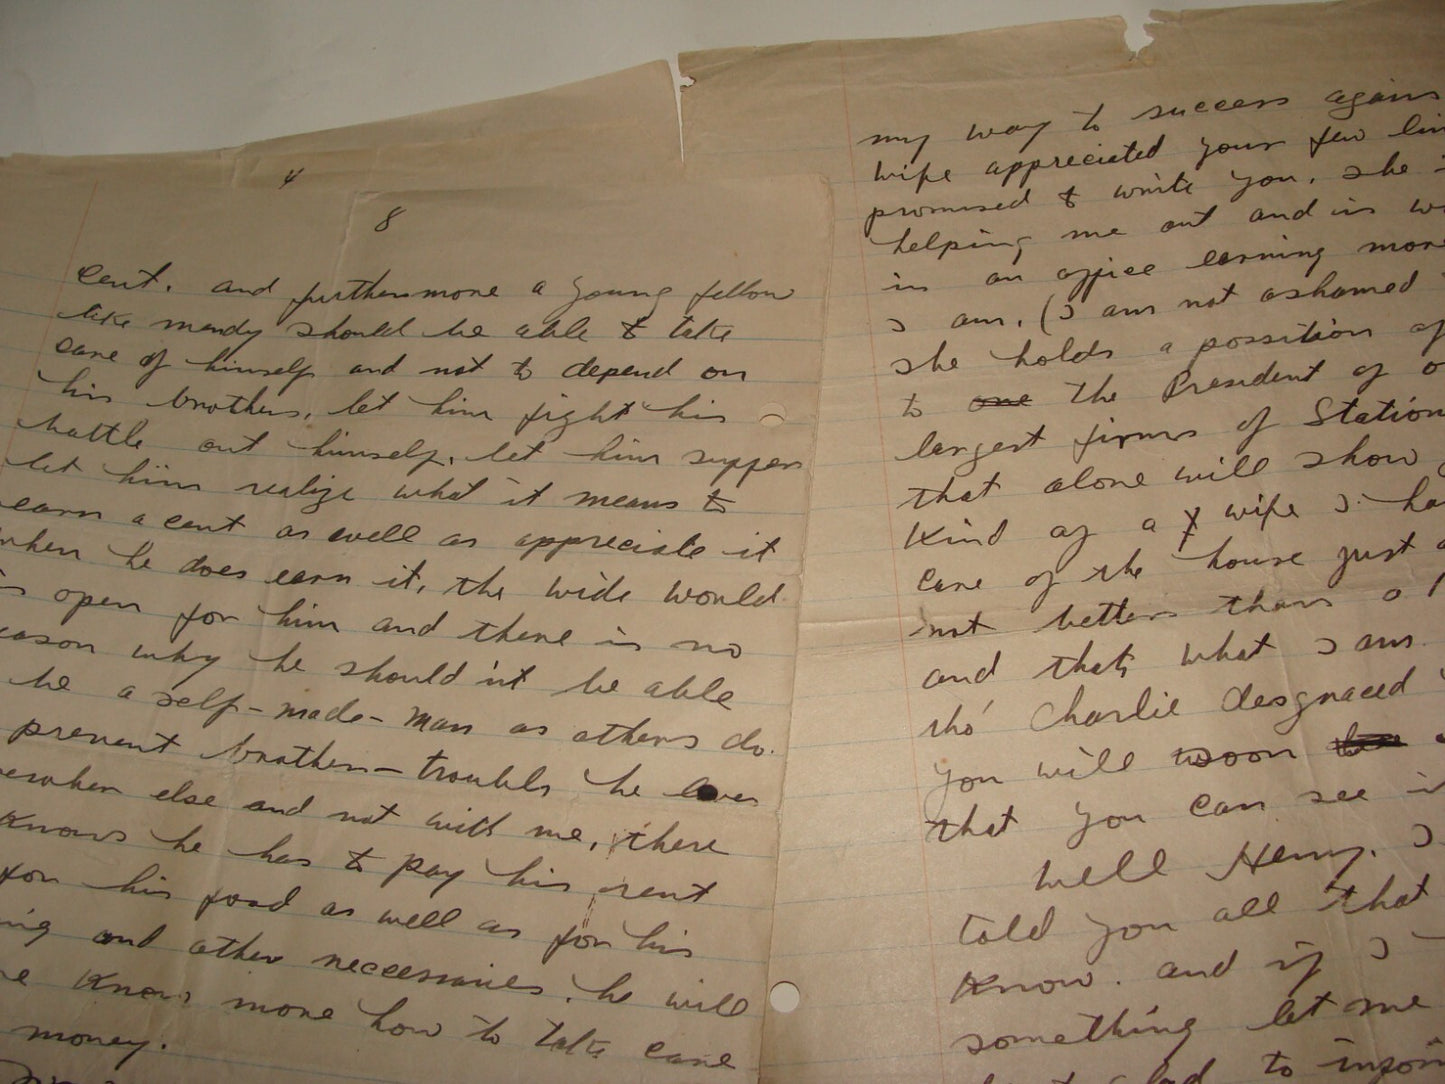 4
8
cent. and furthermore a young fellow
like mendy should be able to take
care of himself and not to depend on
his brothers, let him fight his
battle out himself, let him suffer
let him realize what it means to
earn a cent as well as appreciate it
when he does earn it, the wide world
is open for him and there is no
eason why he should'nt be able
be a self-made-man as others do.
prevent brother-troubls he
else and not with me, there
knows he has to pay his rent
for his food as well as for his
ing and other neccessaries. he will
know more how to take care
money.
my way to success again
wife appreciated your few lin
promised to write you. she
helping me out and is w
in an office earning more
I am. (I am not ashamed
she holds a possition of
to one the President of o
largest firms of Station
that alone will show
kind of a wife I ha
care of the house just
not better than a
and that's what I am.
tho' Charlie desgraced
you will woon
that you can see i
well Henry. I
told you all that
know. and if I
something let me
glad to inform